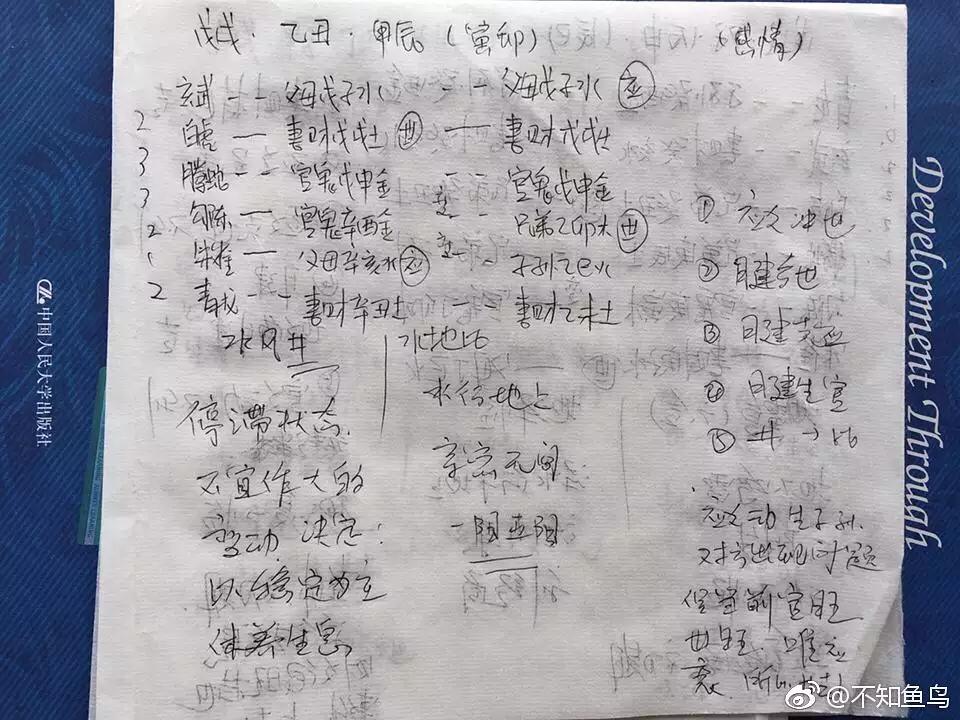 戊戌·乙丑·甲辰(寅卯) (感情)
玄武 -- 父母戊子水 -- 父母戊子水 应
2 白虎 — 妻财戊戌土 世 — 妻财戊戌土
3 腾蛇 -- 官鬼戊申金 -- 官鬼戊申金
3 勾陈 — 官鬼辛酉金 -- 兄弟乙卯木 世
2 朱雀 — 父母辛亥水 应 -- 子孙乙巳火
1
2 青龙 -- 妻财辛丑土 -- 妻财乙未土
水风井
水地比
停滞状态.
不宜作大的
变动 决定:
以稳定为主
休养生息
水行地上
亲密无间
一阳五阴
① 应爻冲世
② 日建合世
③ 日建克应
④ 日建生官
⑤ 井→比
应爻动生子孙.
对方出现问题
官旺
世旺. 唯应
衰.
中国人民大学出版社
Development Through
@不知鱼鸟